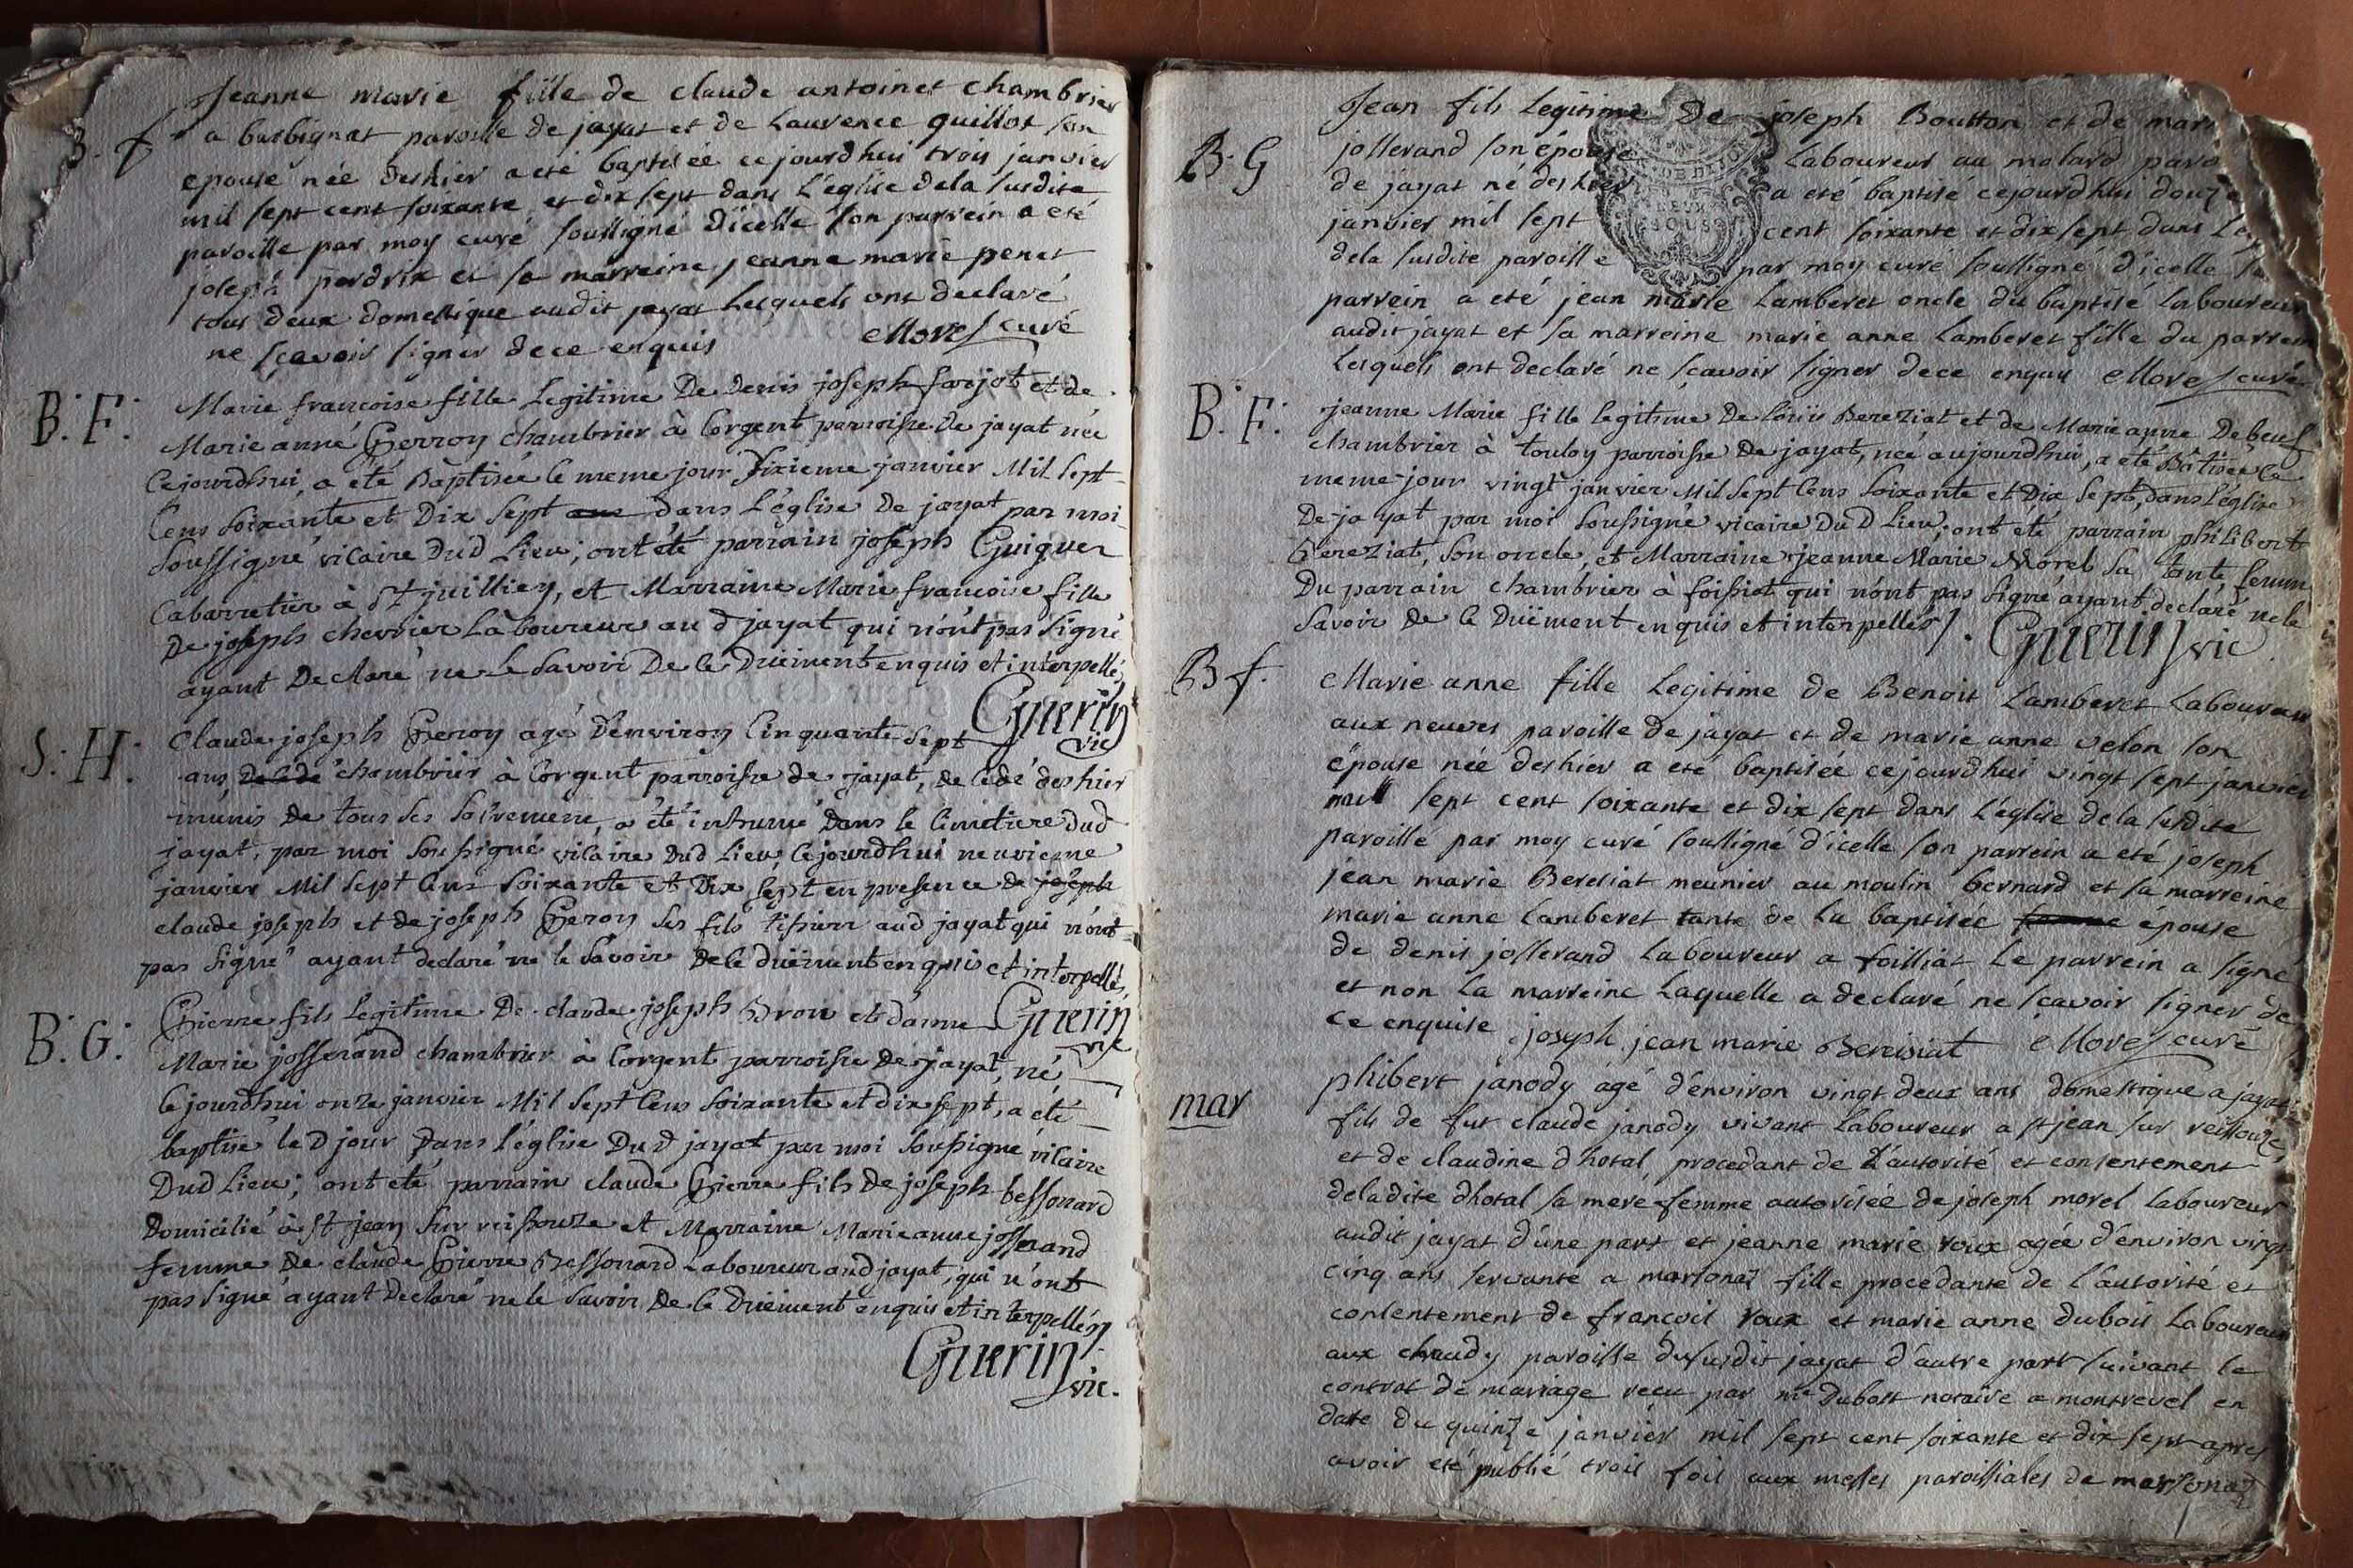 Jeanne marie fille de claude antoinet chambrier
B. f a barbignat paroisse de jayat et de Laurence guillot son
epouse née deshier a eté baptisée cejourdhui trois janvier
mil sept cent soixante et dix sept dans l'église dela susdite
paroisse par moy curé soussigné d'icelle son parrein a eté
joseph perdrix et sa marreine jeanne marie penet
tous deux domestique audit jayat lesquels ont declaré
ne sçavoir signer dece enquis Morel curé
B. F. Marie francoise fille legitime De Denis joseph farjot et de
Marie anne Perron chambrier à Corgent parroisse De jayat née
Cejourdhui, a été Baptisée le meme jour sixieme janvier Mil sept
Cens soixante et Dix sept dans L'église De jayat par moi
soussigné vicaire Dud Lieu; ont été parrain joseph Guiguer
Cabarretier à St juillien, et Marraine Marie francoise fille
De joseph chevrier Laboureur au d jayat qui n'ont pas signé
ayant Declaré ne le savoir De ce Duëment enquis et interpellés
Guerin
vic
S. H. Claude joseph Peron agé D'environ Cinquante-sept
ans, chambrier à Corgent parroisse de jayat, décedé deshier
munis de tous ses sacremens, a été inhumé Dans le Cimetiere dud
jayat, par moi soussigné vicaire Dud Lieu, cejourdhui neuvieme
janvier Mil sept Cens soixante et Dix sept en presence de joseph
claude joseph et de joseph Peron ses fils tissier aud jayat qui n'ont
pas signé ayant declaré ne le savoir De ce duëment enquis et interpellés,
Guerin
vic
B. G. Pierre fils legitime De claude joseph Brou et d'anne
Marie josserand chambrier à Corgent parroisse de jayat, né
Cejourdhui onze janvier Mil sept Cens soixante et dix sept, a été
baptisé le D jour Dans l'église Dud jayat par moi soussigné vicaire
Dud Lieu; ont été parrain claude Pierre fils de joseph bessonard
Domicilié à st jean sur reissouze et Marraine Marie anne josserand
femme De claude Pierre Bessonard Laboureur aud jayat, qui n'ont
pas signé ayant Declaré ne le savoir De ce Duëment enquis et interpellés
Guerin
vic.
Jean fils legitime De joseph Boutton et de mar
B. G jollerand son épouse Laboureur au molard paro
de jayat né deshier a eté baptisé cejourdhui douze
janvier mil sept cent soixante et dix sept dans l'eg
dela susdite paroisse par moy curé soussigné d'icelle
parrein a eté jean marie Lamberet oncle du baptisé laboureur
audit jayat et sa marreine marie anne Lamberet fille du parrein
lesquels ont declaré ne sçavoir signer dece enquis Morel curé
B. F. jeanne Marie fille legitime De Loüis Bereziat et de Marie anne Debeuf
chambrier à Toulon parroisse De jayat, née aujourdhui, a été Bâtisée le
meme jour vingt janvier Mil sept Cens soixante et Dix sept, dans l'église
De jayat par moi soussigné vicaire Du D Lieu; ont été parrain philibert
Bereziat, son oncle, et Marraine jeanne Marie Morel sa tante, femme
Du parrain chambrier à foissiat qui n'ont pas signé ayant declaré ne le
savoir De ce Duëment enquis et interpellés.
Guerin vic
B f. Marie anne fille legitime de Benoit Lamberet Laboureur
aux neuves paroisse de jayat et de marie anne velon son
épouse née deshier a eté baptisée cejourdhui vingt sept janvier
mil sept cent soixante et dix sept dans l'église dela susdite
paroisse par moy curé soussigné d'icelle son parrein a eté joseph
jean marie Beresiat meunier au moulin bernard et sa marreine
marie anne Lamberet tante de la baptisée épouse
de denis jollerand laboureur a foissiat le parrein a signé
et non la marreine laquelle a declaré ne sçavoir signer de
ce enquise joseph jean marie Beresiat Morel curé
mar phibert janody âgé d'environ vingt deux ans domestique a jayat
fils de fut claude janody vivant laboureur a st jean sur reissouze,
et de claudine dhotal procedant de l'autorité et consentement
deladite dhotal sa mere femme autorisée de joseph morel laboureur
audit jayat d'une part et jeanne marie roux agée d'environ vingt
cinq ans servante a marsonaz fille procedante de l'autorité et
consentement de françois roux et marie anne dubois laboureur
aux chaudy paroisse dususdit jayat d'autre part suivant le
contrat de mariage reçu par me Dubost notaire a montrevel en
date du quinze janvier mil sept cent soixante et dix sept apres
avoir eté publié trois fois aux messes paroissiales de marsonaz